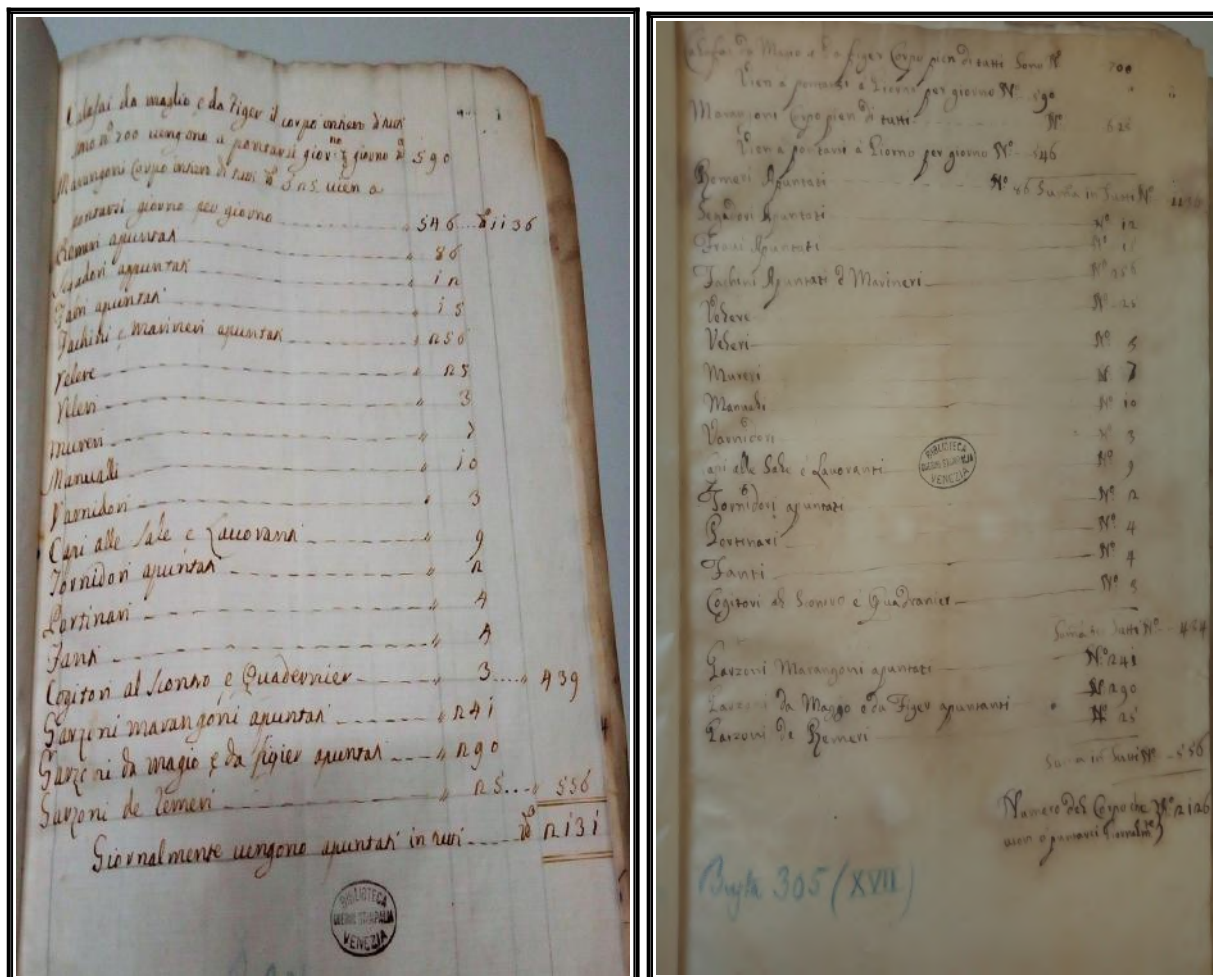 Calafai da maglio e da Figer il corpo intien di tuti
sono nº 700 vengono a pontarsi giorno per giorno nº 590
Marangoni Corpo intien di tuti nº 3n5 vien a
pontarsi giorno per giorno 546 .... nº 1136
Remeri apuntati 86
Segadori appuntati 12
Fabri apuntati 15
Fachini e marineri apuntati 256
Velere 25
Veleri 3
mureri 7
Manuali 10
Varnidori 3
Capi alle Sale e Lavoranti 9
Tornidori apuntati 2
Portinari 4
Fanti 4
Cogitori al Scontro e Quadernier 3 .... 439
Garzoni marangoni apuntati 241
Garzoni da magio e da figier apuntati 290
Garzoni de remeri 25 .... 556
Giornalmente vengono apuntati in tuti nº 2131
BIBLIOTECA
QUERINI STAMPALIA
VENEZIA
Calafai da Magio e da Figer Corpo pien di tutti Sono Nº 700
Vien à pontarsi à Giorno per giorno Nº 590
Marangoni Corpo pien di tutti Nº 625
Vien a pontarsi à Giorno per giorno Nº 546
Remeri Apuntati Nº 86 Summa in Tutti Nº
Segadori Apuntati Nº 12
Apuntati Nº
Fachini Apuntati e Marineri Nº 256
Velere Nº 25
Veleri Nº
Mureri Nº 7
Manuali Nº 10
Varnidori Nº 3
Capi alle Sale e Lavoranti Nº 9
Tornidori apuntati Nº 2
Portinari Nº 4
Fanti Nº 4
Cogitori al Scontro e Quadranier Nº 3
Suma in Tutti Nº 434
Garzoni Marangoni apuntati Nº 241
Garzoni da Maggio e da Figer apuntanti Nº 290
Garzoni de Remeri Nº 25
Suma in Tutti Nº 556
Numero del Corpo che Nº 2126
vien à pontarsi Giornalmte
BIBLIOTECA
QUERINI STAMPALIA
VENEZIA
Busta 305 (XVII)